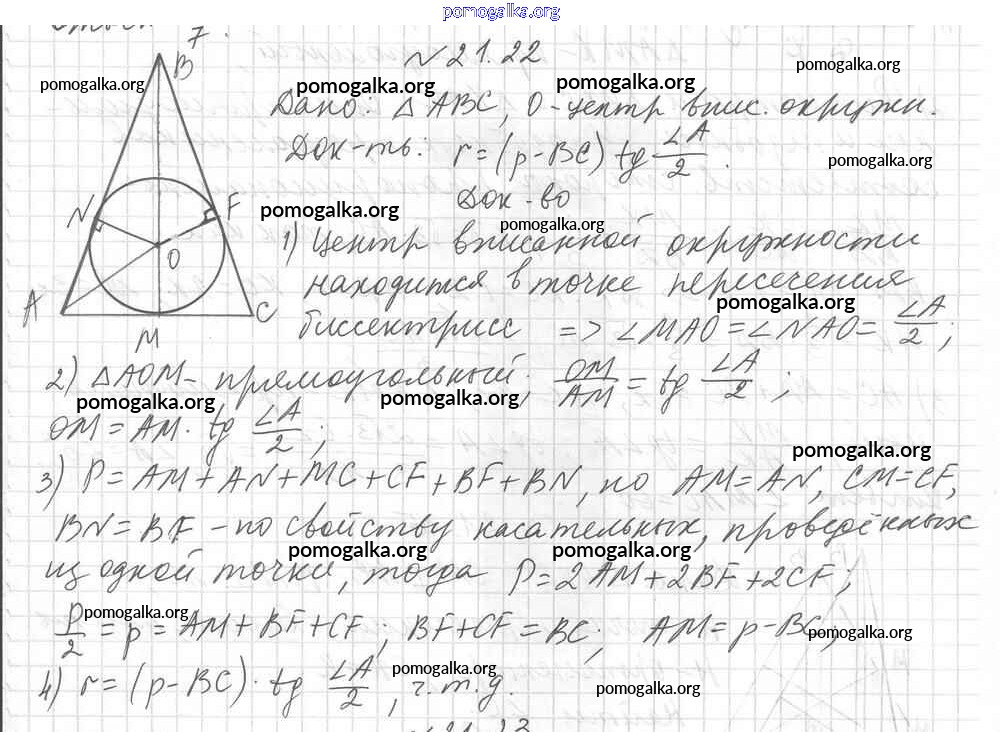 pomogalka.org
7.
№ 21.22
B
pomogalka.org
pomogalka.org
pomogalka.org
pomogalka.org
Дано: △ ABC, O - центр впис. окружн.
Док-ть: r = (p - BC) tg ∠A/2.
pomogalka.org
Док-во
pomogalka.org
pomogalka.org
N
F
O
A
C
M
1) Центр вписанной окружности
находится в точке пересечения
pomogalka.org
биссектрисс => ∠MAO = ∠NAO = ∠A/2;
2) △AOM - прямоугольный; OM/AM = tg ∠A/2;
pomogalka.org
pomogalka.org
OM = AM · tg ∠A/2;
pomogalka.org
3) P = AM + AN + MC + CF + BF + BN, но AM = AN, CM = CF,
BN = BF - по свойству касательных, проведённых
pomogalka.org
pomogalka.org
из одной точки, тогда P = 2AM + 2BF + 2CF;
pomogalka.org
P/2 = p = AM + BF + CF; BF + CF = BC; AM = p - BC;
pomogalka.org
pomogalka.org
4) r = (p - BC) · tg ∠A/2, ч.т.д.
pomogalka.org